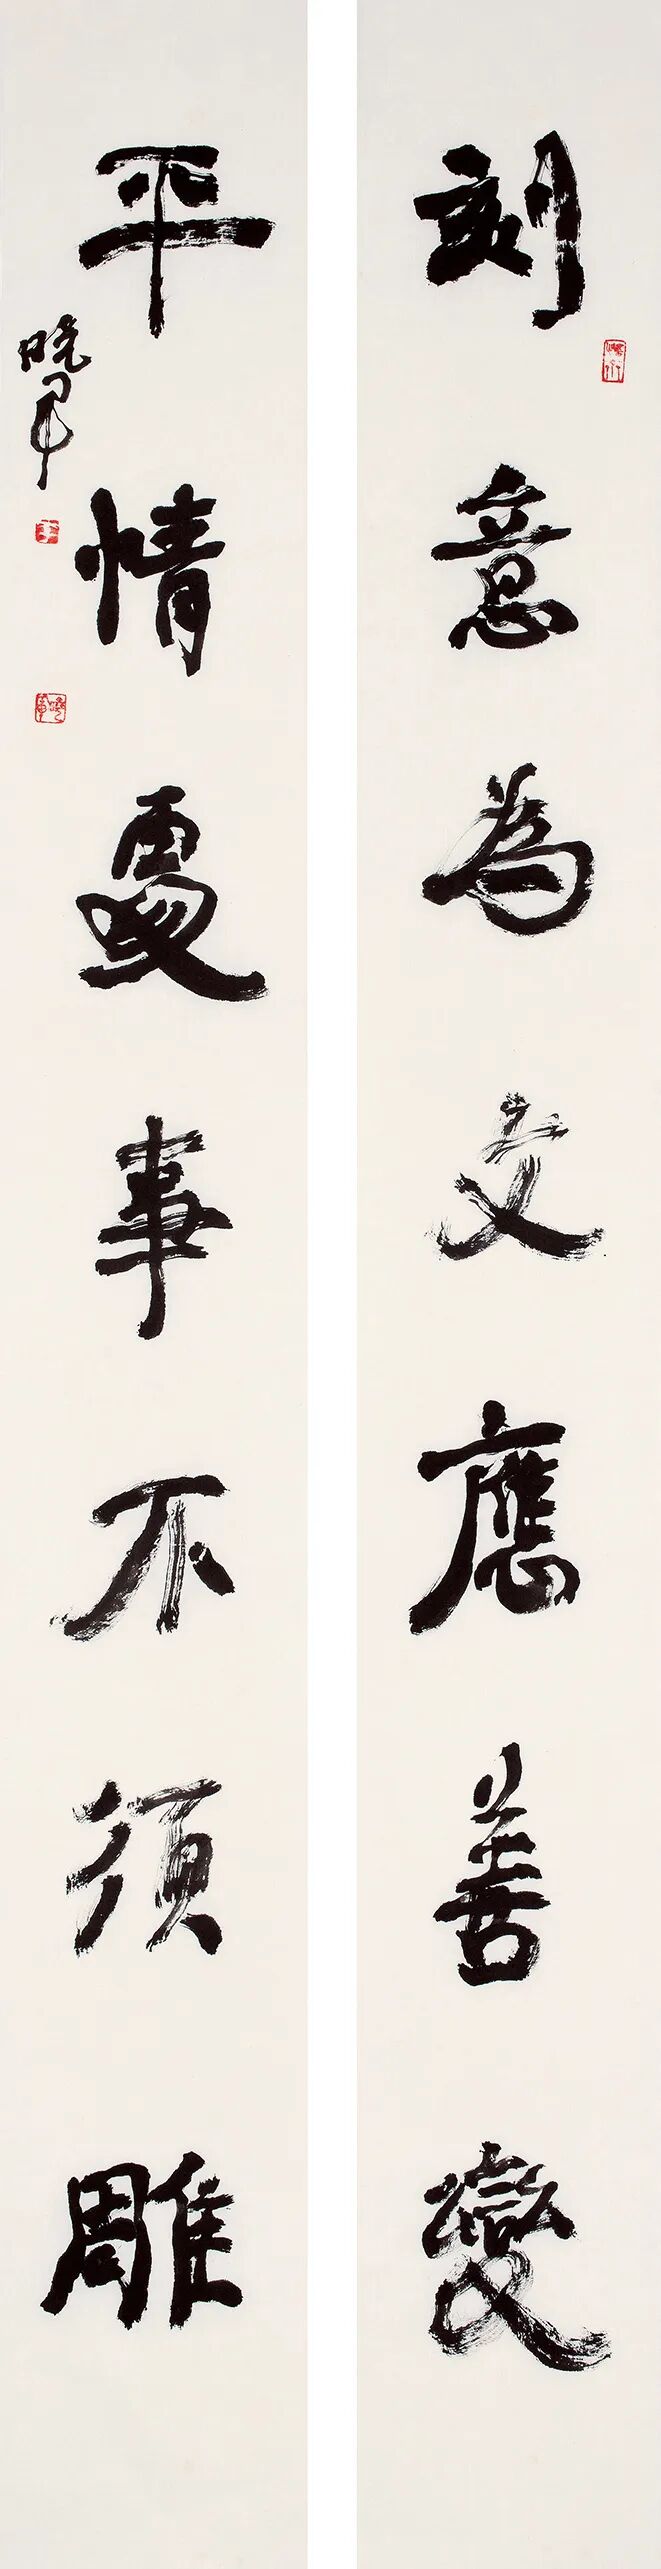 刻意為文應善變
平情處事不須雕
曉軍